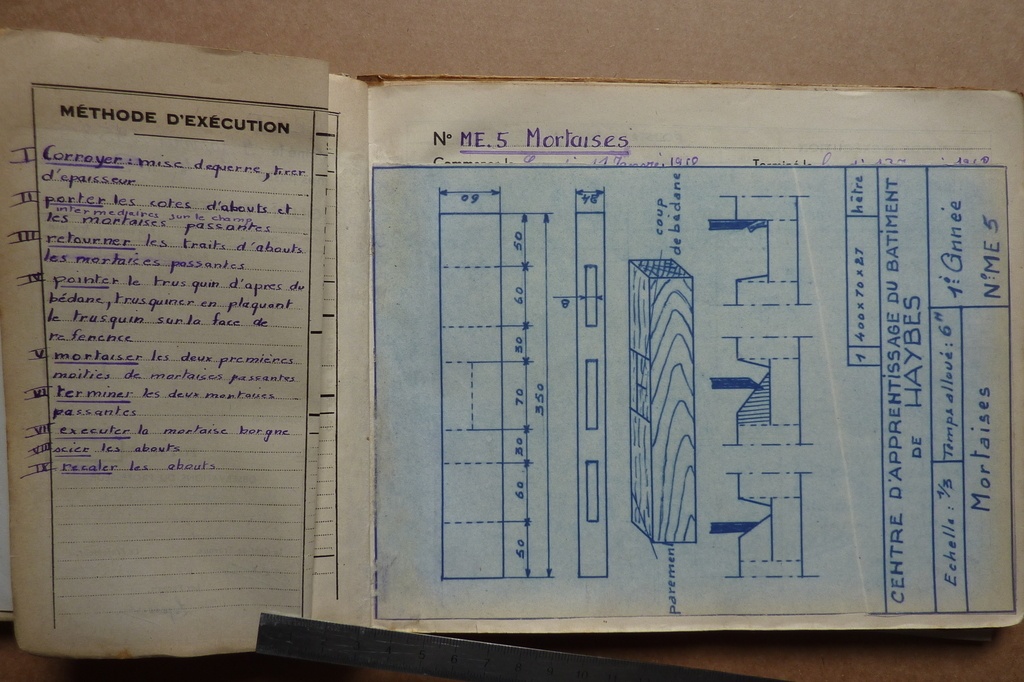 MÉTHODE D'EXÉCUTION
I Corroyer : mise dequerre, tirer
d'epaisseur
II porter les cotes d'abouts et
intermediaires sur le champ
les mortaises passantes
III retourner les traits d'abouts
les mortaices passantes
IV pointer le trusquin d'apres du
bédane, trusquiner en plaquant
le trusquin sur la face de
reference
V mortaiser les deux premières
moitiés de mortaises passantes
VI terminer les deux mortaises
passantes
VII executer la mortaise borgne
VIII scier les abouts
IX recaler les abouts
N° ME.5 Mortaises
60
50
60
30
70
30
60
50
350
24
8
coup
de bédane
parement
1 400 x 70 x 27 hêtre
CENTRE D'APPRENTISSAGE DU BATIMENT
DE
HAYBES
Echelle : 1/3
Temps alloué : 6H
1e Année
Mortaises
N°ME 5